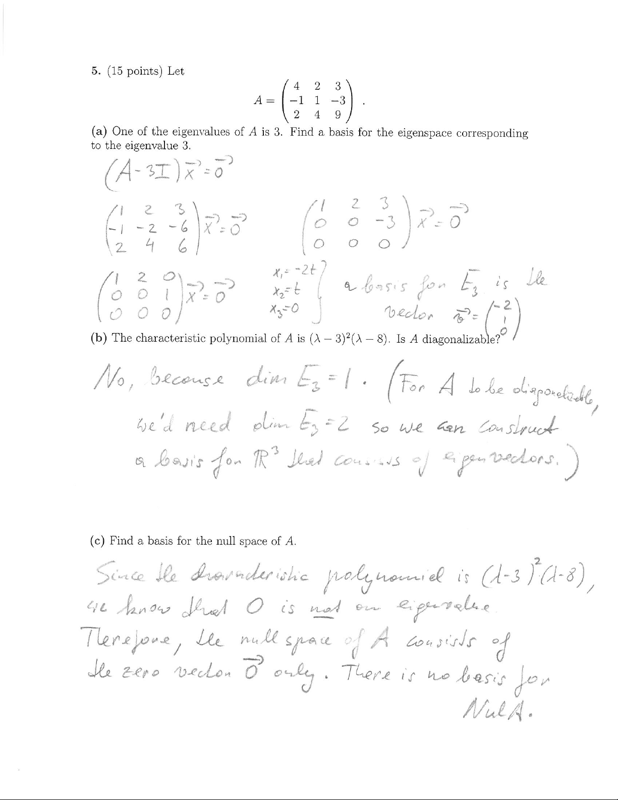 5. (15 points) Let
A = ( 4 2 3
-1 1 -3
2 4 9 ) .
(a) One of the eigenvalues of A is 3. Find a basis for the eigenspace corresponding
to the eigenvalue 3.
(A-3I)x⃗=0⃗
(1 2 3
-1 -2 -6
2 4 6) x⃗=0⃗
(1 2 3
0 0 -3
0 0 0) x⃗=0⃗
(1 2 0
0 0 1
0 0 0) x⃗=0⃗
x₁=-2t
x₂=t
x₃=0 }
a basis for E₃ is the
vector v⃗=(-2
1
0)
(b) The characteristic polynomial of A is (λ − 3)²(λ − 8). Is A diagonalizable?
No, because dim E₃=1. (For A to be diagonalizable,
we'd need dim E₃=2 so we can construct
a basis for ℝ³ that consists of eigenvectors.)
(c) Find a basis for the null space of A.
Since the characteristic polynomial is (λ-3)²(λ-8),
we know that 0 is not an eigenvalue.
Therefore, the null space of A consists of
the zero vector 0⃗ only. There is no basis for
Nul A.